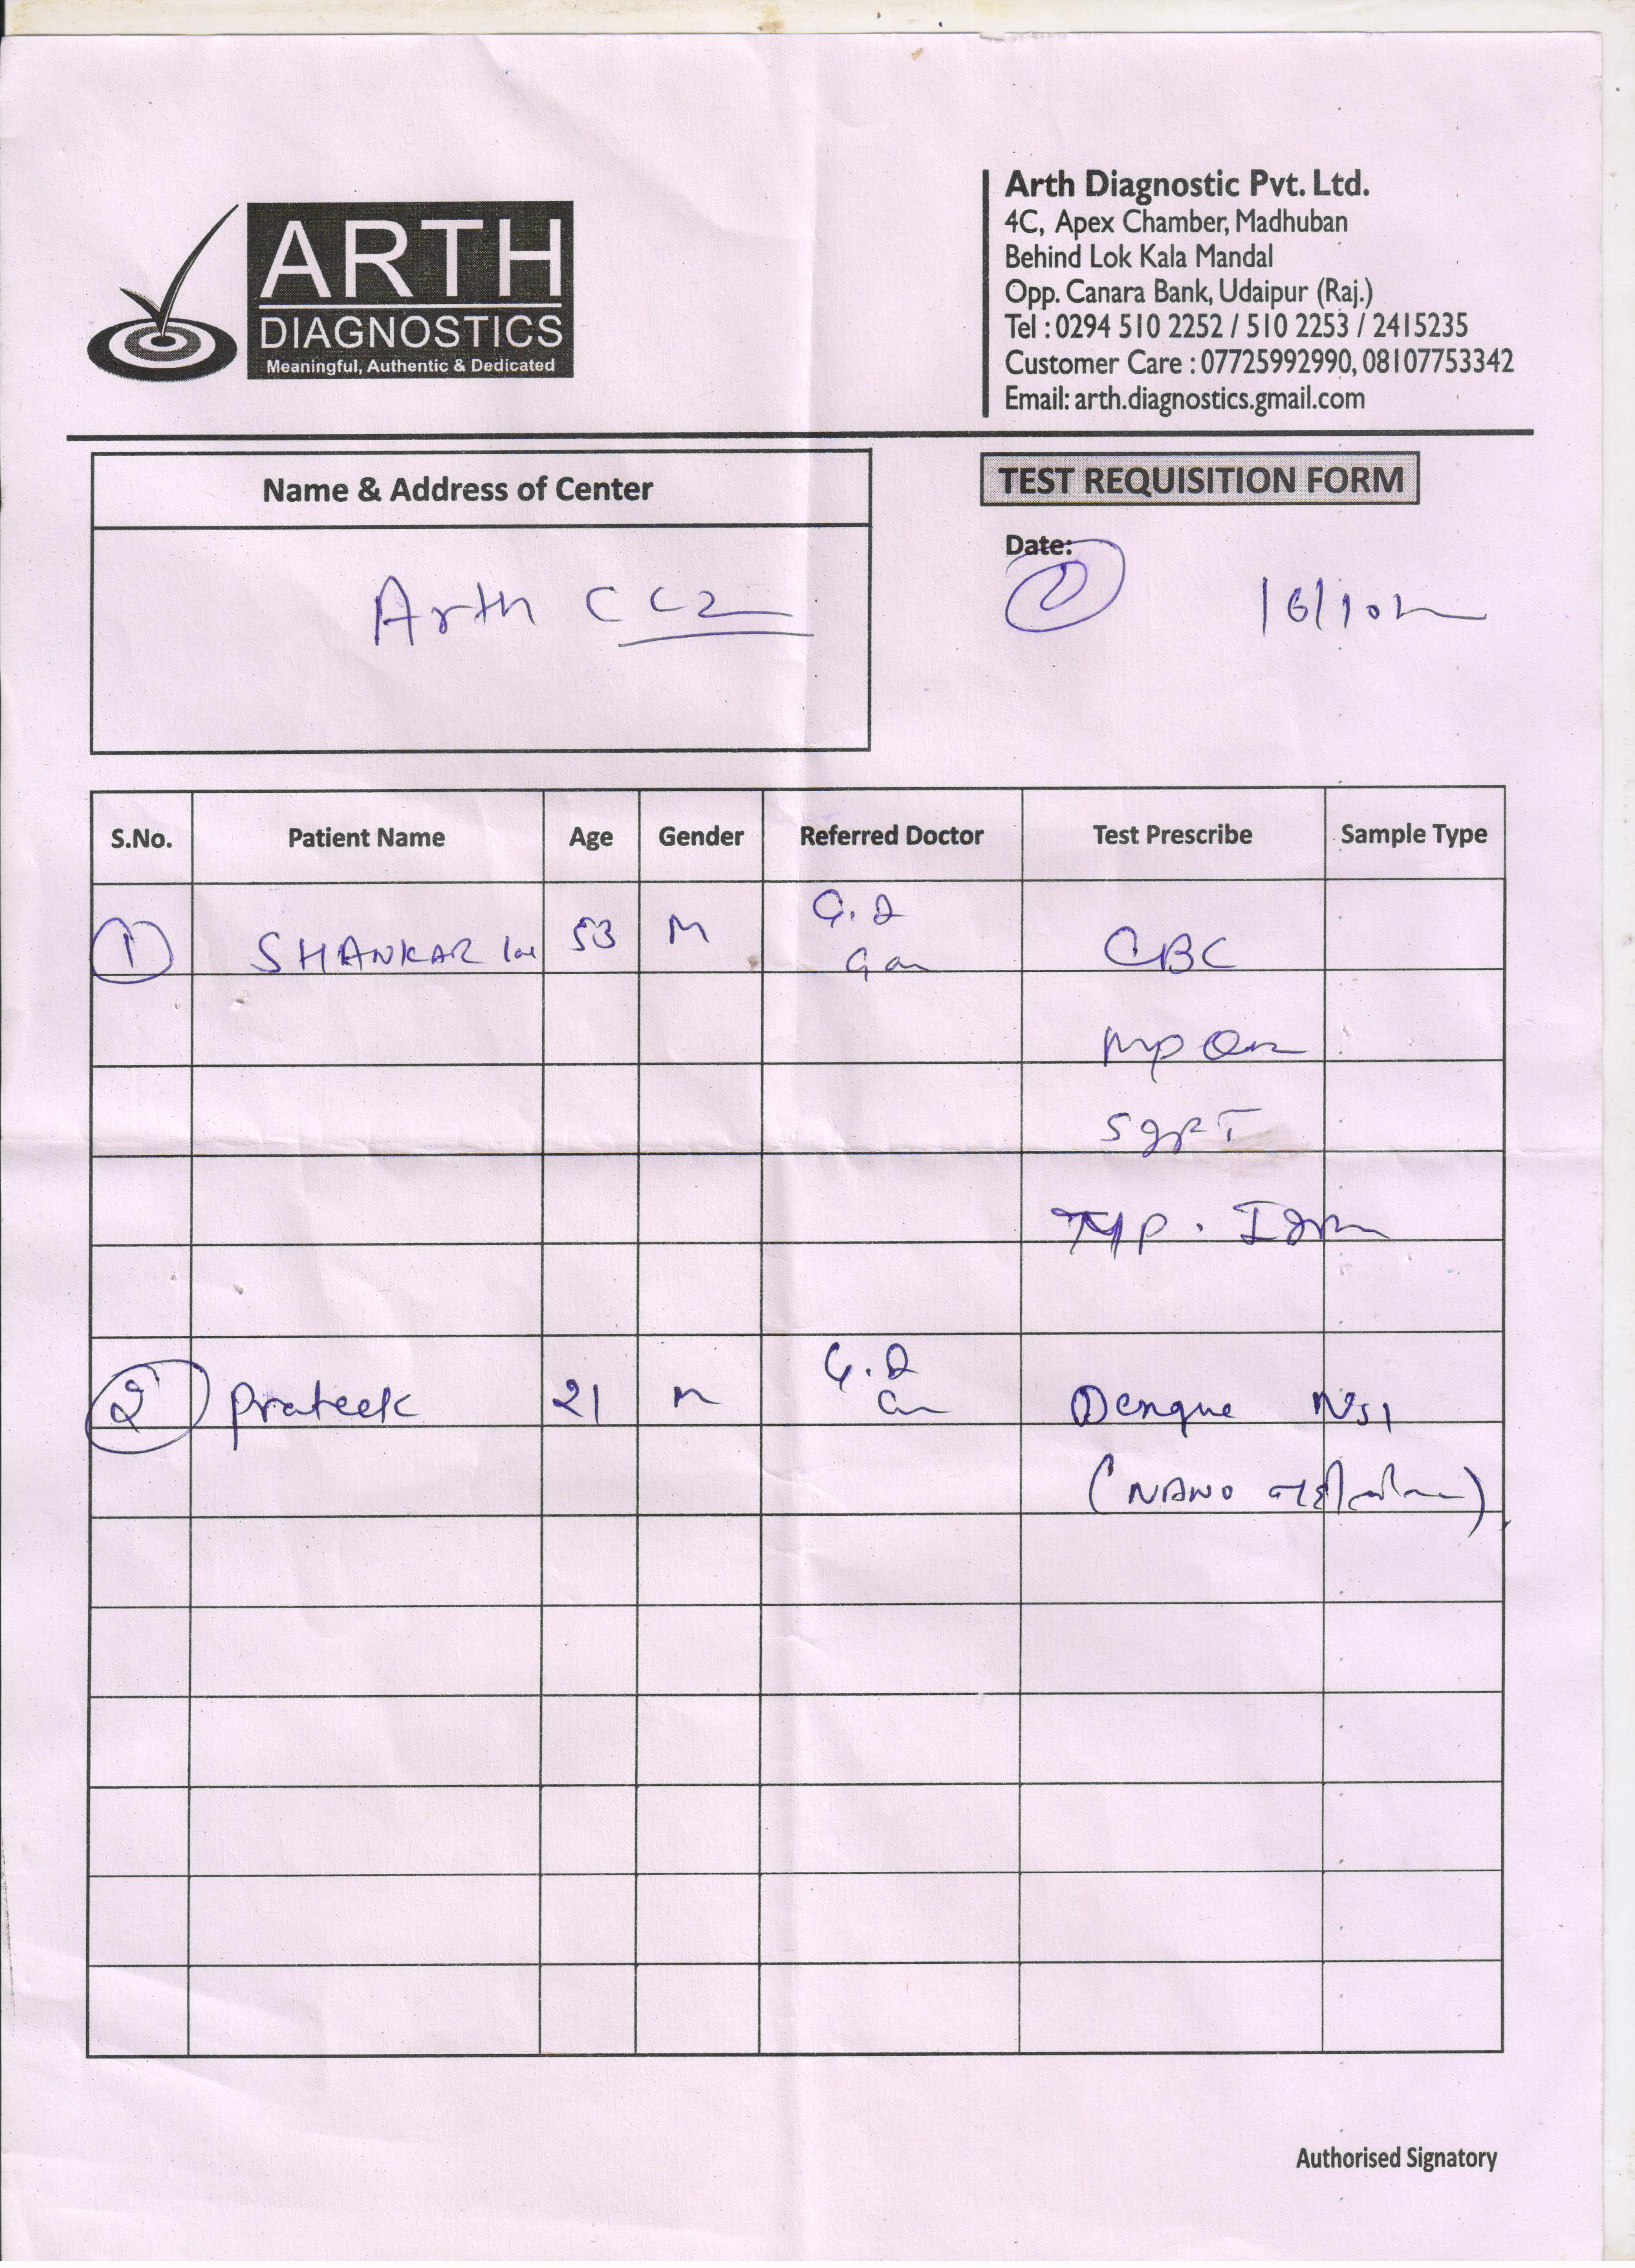 ARTH
DIAGNOSTICS
Meaningful, Authentic & Dedicated
Arth Diagnostic Pvt. Ltd.
4C, Apex Chamber, Madhuban
Behind Lok Kala Mandal
Opp. Canara Bank, Udaipur (Raj.)
Tel : 0294 510 2252 / 510 2253 / 2415235
Customer Care : 07725992990, 08107753342
Email: arth.diagnostics.gmail.com
Name & Address of Center
TEST REQUISITION FORM
Date:
Arth CC2
S.No. Patient Name Age Gender Referred Doctor Test Prescribe Sample Type
1 SHANKAR lal 53 M CBC
MP
SGPT
Typ. Igm
2 Prateek 21 M Dengue NS1
(NANO
Authorised Signatory